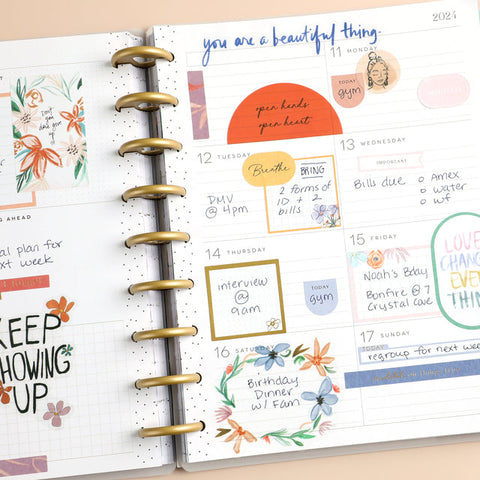 Don't you ever give up
NG AHEAD
al plan for
ext week
KEEP
HOWING
UP
2024
you are a beautiful thing.
11 MONDAY
TODAY
gym
open hands
open heart
12 TUESDAY
DMV
@ 4pm
Breathe
BRING
2 forms of
ID + 2
bills
13 WEDNESDAY
IMPORTANT
Bills due
o Amex
o water
o wf
14 THURSDAY
interview
@
9am
TODAY
gym
15 FRIDAY
Noah's Bday
Bonfire @ 7
Crystal Cove
LOVE
CHANG
EVER
THIN
16 SATURDAY
Birthday
Dinner
w/ Fam
17 SUNDAY
TODAY
regroup for next week